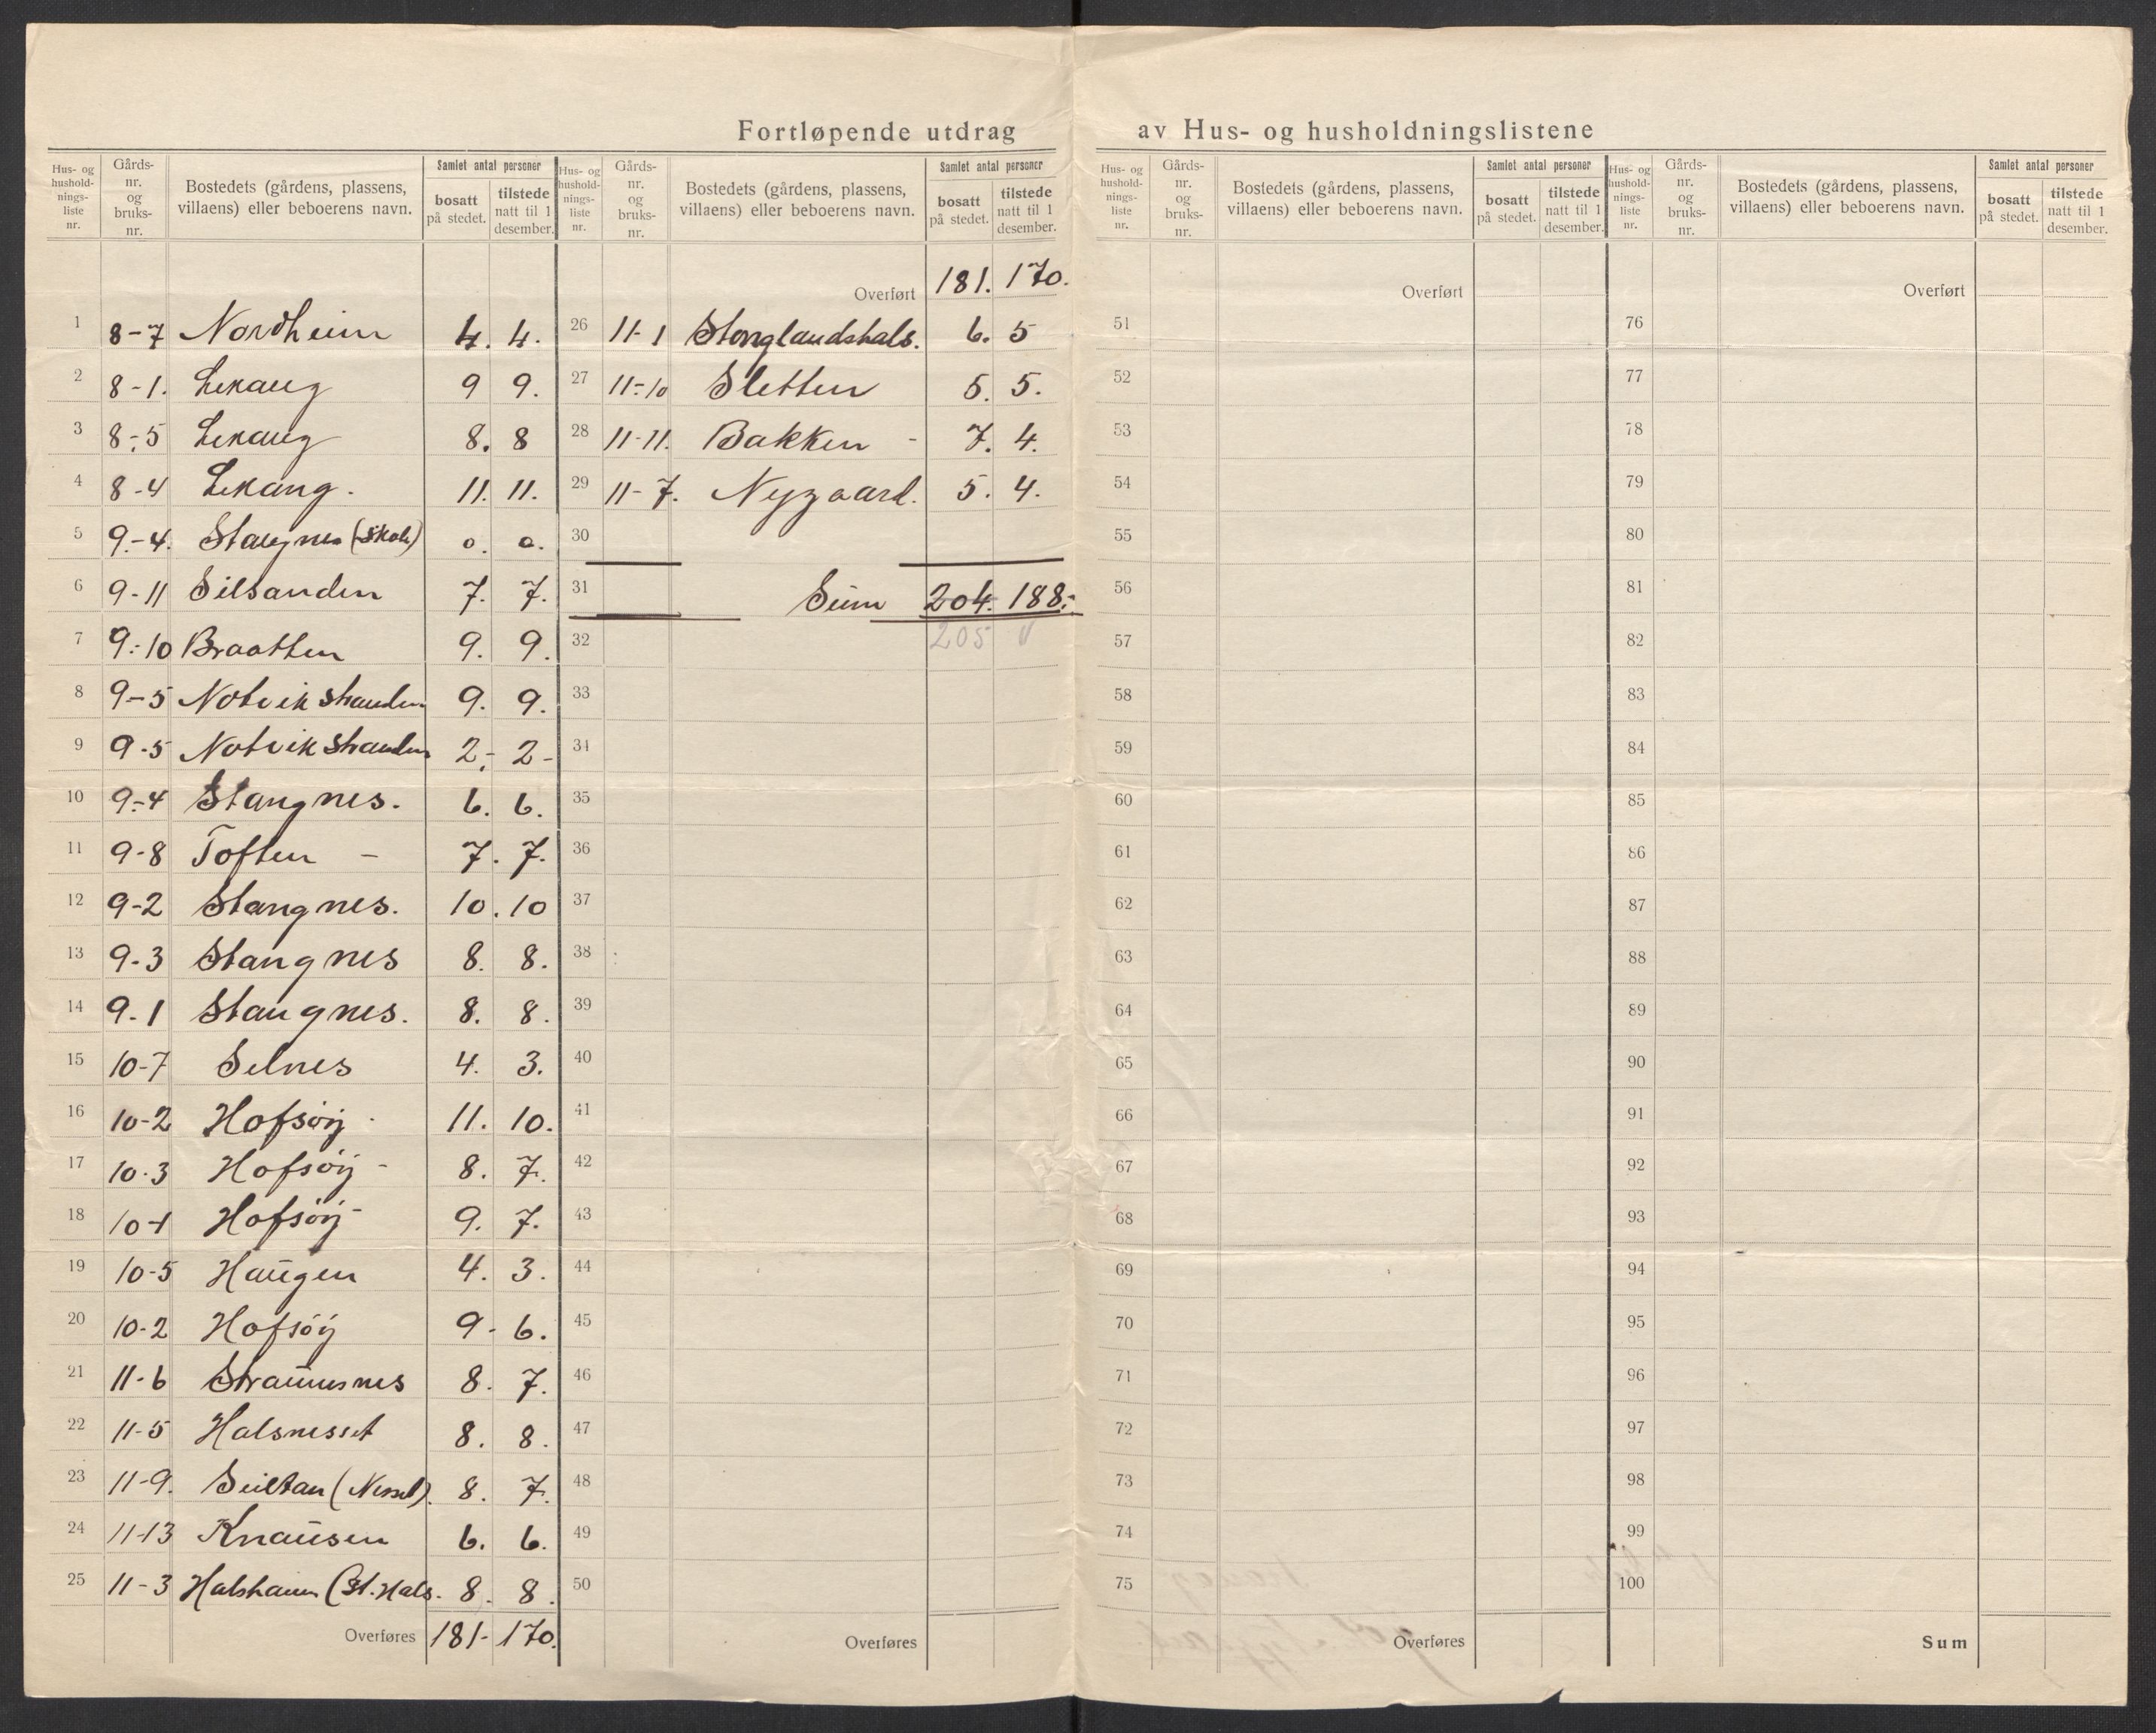 Fortløpende utdrag av Hus- og husholdningslistene
Hus- og hushold-nings-liste nr. Gårds-nr. og bruks-nr. Bostedets (gårdens, plassens, villaens) eller beboerens navn. Samlet antal personer bosatt på stedet. tilstede natt til 1 desember.
1 8-7 Nordheim 4. 4.
2 8-1. Lekang 9 9.
3 8-5 Lekang 8. 8
4 8-4 Lekang. 11. 11.
5 9-4. Stangnes (Skole) 0. 0.
6 9-11 Silsanden 7. 7.
7 9-10 Braatten 9. 9.
8 9-5 Notvikstranden 9. 9.
9 9-5 Notvikstranden 2,- 2-
10 9-4 Stangnes. 6. 6.
11 9-8 Toften - 7. 7.
12 9-2 Stangnes. 10. 10
13 9-3 Stangnes 8. 8.
14 9-1 Stangnes. 8. 8.
15 10-7 Selnes 4. 3.
16 10-2 Hofsöÿ 11. 10.
17 10-3 Hofsöÿ - 8. 7.
18 10-1 Hofsöÿ - 9. 7.
19 10-5 Haugen 4. 3.
20 10-2 Hofsöÿ 9- 6.
21 11-6 Straumsnes 8. 7.
22 11-5 Halsnesset 8. 8.
23 11-9. (Nesset). 8. 7.
24 11-13 Knausen 6. 6.
25 11-3 Halshaun (St. Hals. 8. 8.
Overføres 181- 170.
Hus- og hushold-nings-liste nr. Gårds-nr. og bruks-nr. Bostedets (gårdens, plassens, villaens) eller beboerens navn. Samlet antal personer bosatt på stedet. tilstede natt til 1 desember.
Overført 181. 170.
26 11-1 Stonglandshals. 6. 5
27 11-10 Sletten 5. 5.
28 11-11. Bakken - 7. 4.
29 11-7. Nygaard. 5. 4.
30
31 Sum 204. 188.-
32 205 v
33
34
35
36
37
38
39
40
41
42
43
44
45
46
47
48
49
50
Overføres
Hus- og hushold-nings-liste nr. Gårds-nr. og bruks-nr. Bostedets (gårdens, plassens, villaens) eller beboerens navn. Samlet antal personer bosatt på stedet. tilstede natt til 1 desember.
Overført
51
52
53
54
55
56
57
58
59
60
61
62
63
64
65
66
67
68
69
70
71
72
73
74
75
Overføres
Hus- og hushold-nings-liste nr. Gårds-nr. og bruks-nr. Bostedets (gårdens, plassens, villaens) eller beboerens navn. Samlet antal personer bosatt på stedet. tilstede natt til 1 desember.
Overført
76
77
78
79
80
81
82
83
84
85
86
87
88
89
90
91
92
93
94
95
96
97
98
99
100
Sum